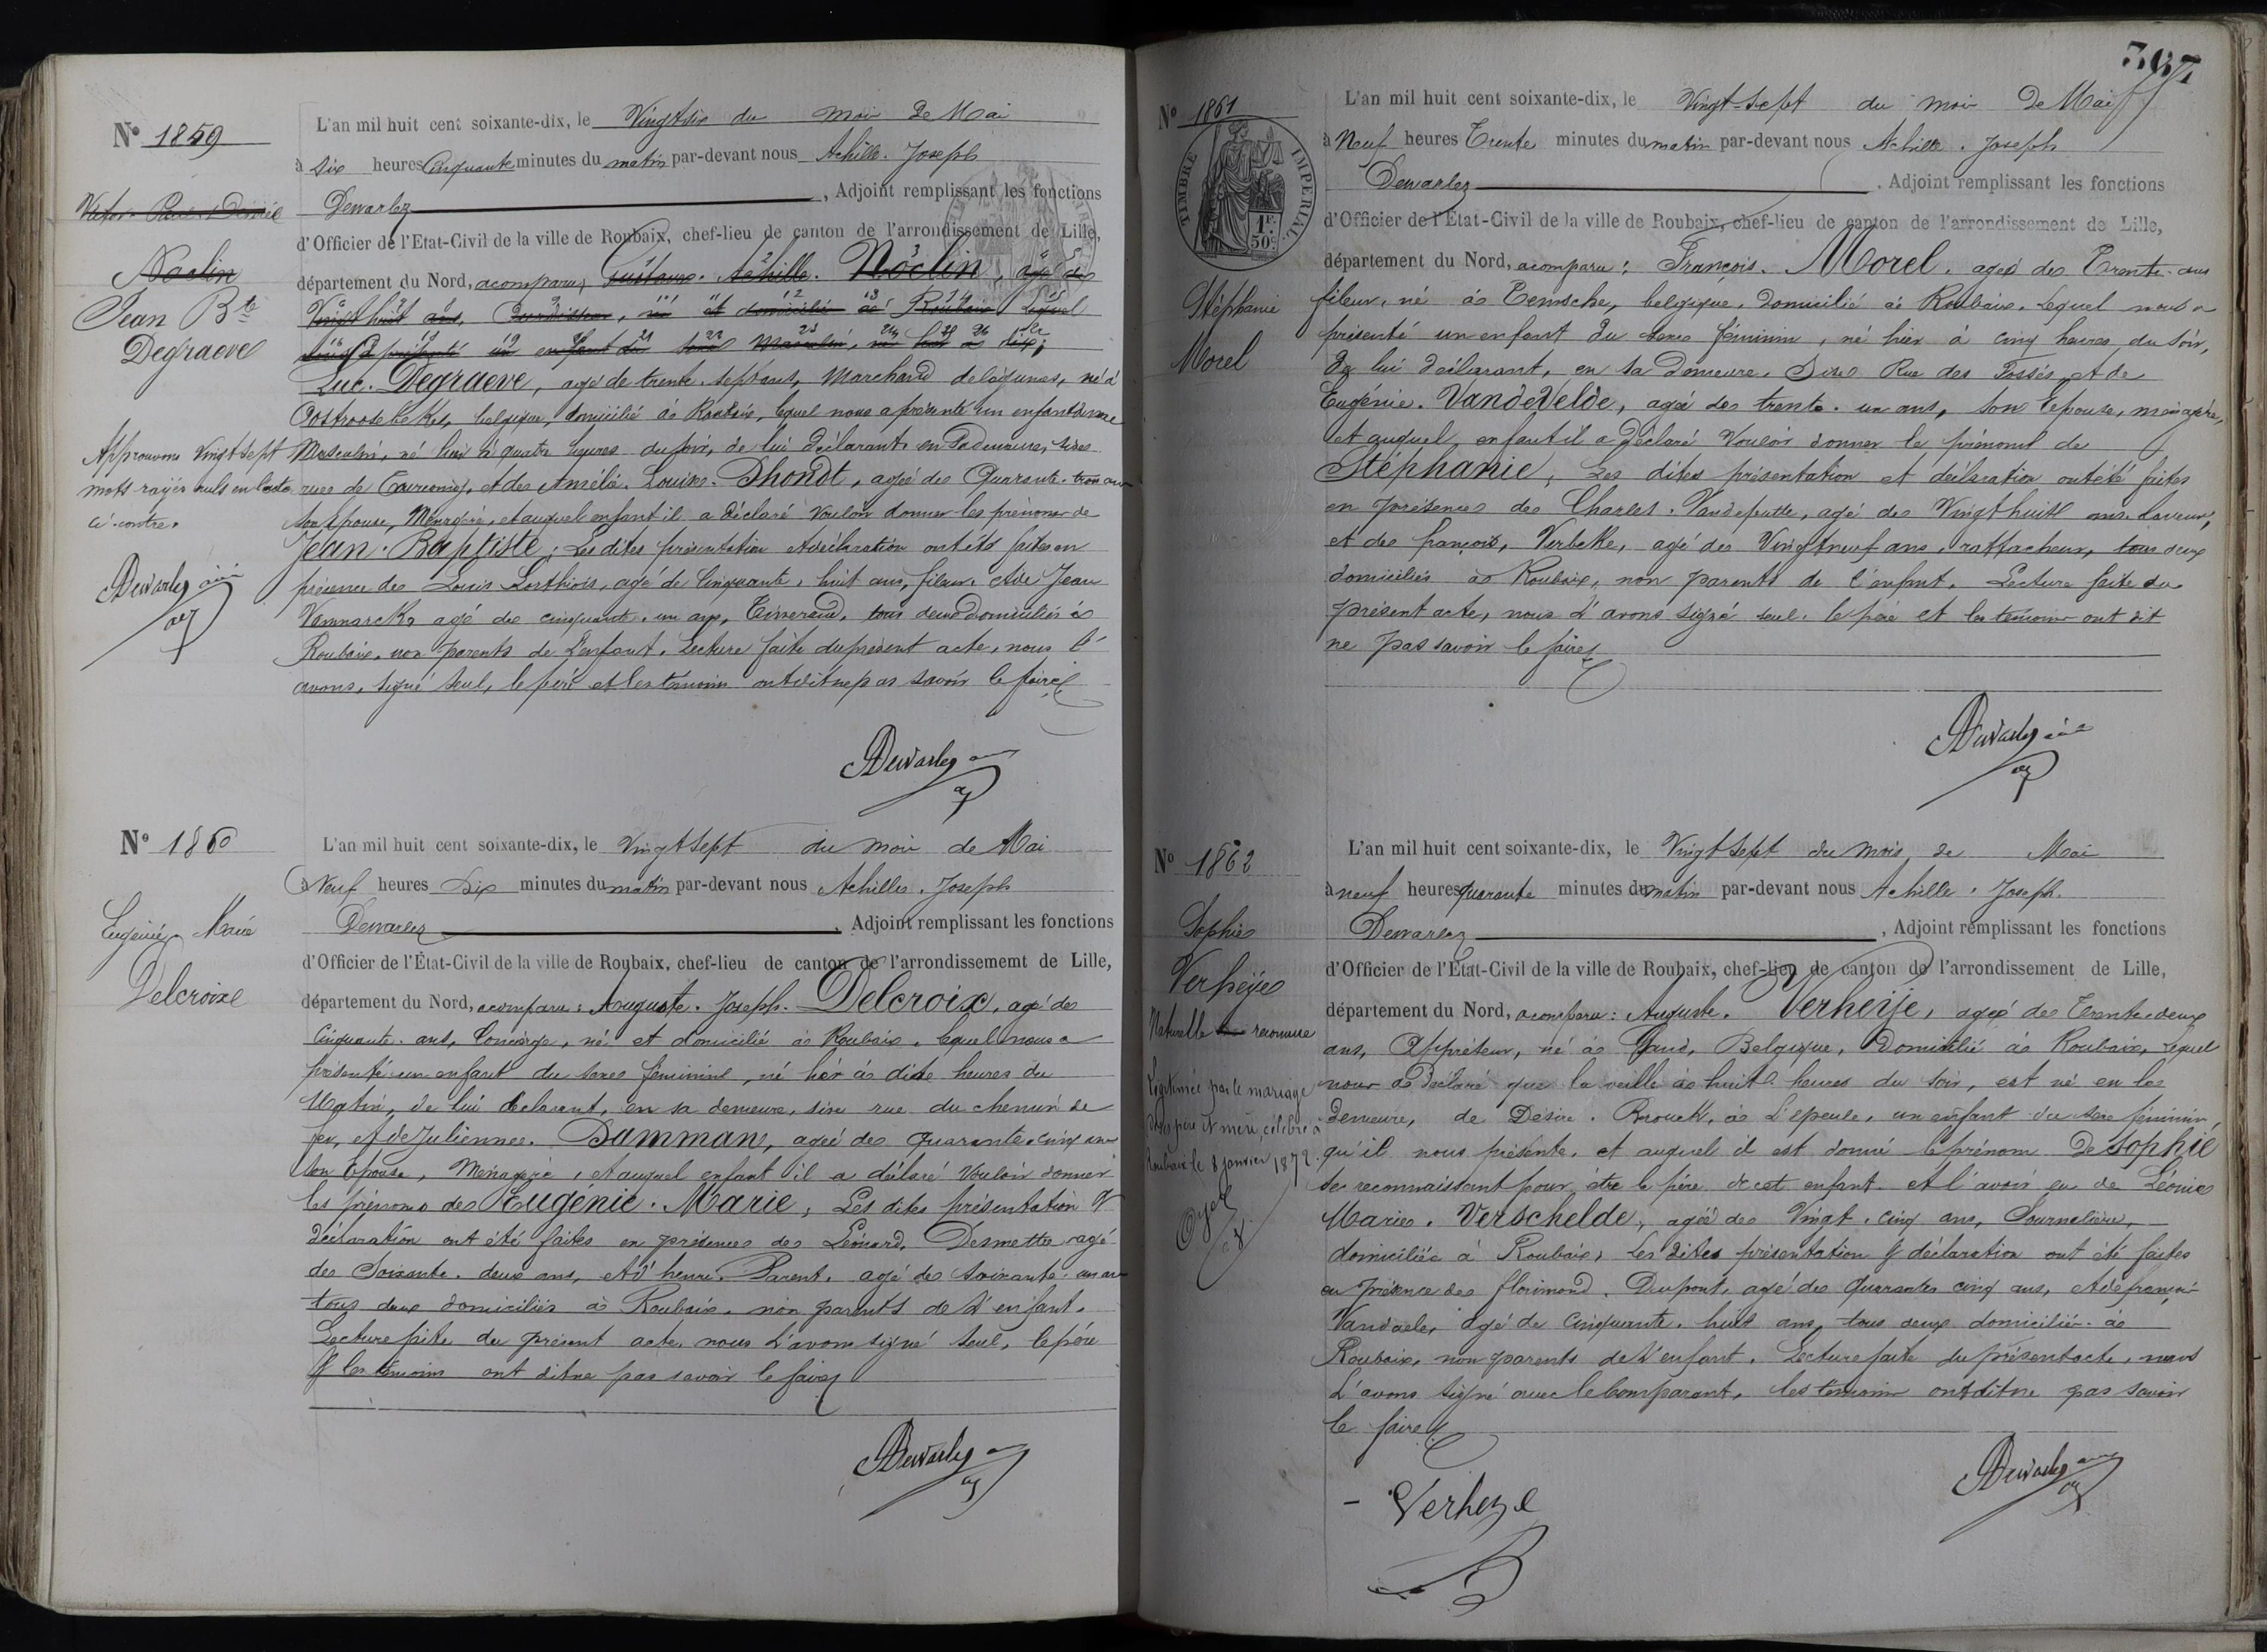 N° 1859
Victor Paul Désiré
Noclin
Jean Bte
Degraeve
Approuvons Vingt sept
mots rayés nuls en l'acte
ci-contre.
ADewarlez
L'an mil huit cent soixante-dix, le Vingt six du mois de Mai
à six heures Cinquante minutes du matin par-devant nous Achille. Joseph
Dewarlez, Adjoint remplissant les fonctions
d'Officier de l'Etat-Civil de la ville de Roubaix, chef-lieu de canton de l'arrondissement de Lille,
département du Nord, a comparu, Gustave. Achille. Noclin, agé de
Vingt huit ans, , né et domicilié à Roubaix lequel
nous a présenté un enfant du sexe Masculin, né hier à dix,
Luc. Degraeve, agé de trente. sept ans, Marchand de légumes, né à
Oostroosebeke, belgique, domicilié à Roubaix, lequel nous a présenté un enfant du sexe
Masculin, né hier à quatre heures du soir, de lui déclarant, en sa demeure, sise
rue de Tourcoing, et de Amélie. Louise. Dhondt, agée de Quarante. trois ans
son Epouse, Ménagère, et auquel enfant il a déclaré vouloir donner les prénoms de
Jean. Baptiste; Les dites présentation et déclaration ont été faites en
présence de Louis Lorthiois, agé de Cinquante. huit ans, fileur. et de Jean
Vannarck, agé de cinquante. un ans, Tisserand, tous deux domiciliés à
Roubaix. non parents de l'enfant. Lecture faite du présent acte, nous l'
avons, signé seul, le père et les témoins ont dit ne pas savoir le faire
ADewarlez
N° 1860
Eugénie Marie
Delcroix
L'an mil huit cent soixante-dix, le Vingt sept du mois de Mai
à Neuf heures Dix minutes du matin par-devant nous Achille. Joseph
Dewarlez, Adjoint remplissant les fonctions
d'Officier de l'État-Civil de la ville de Roubaix, chef-lieu de canton de l'arrondissememt de Lille,
département du Nord, a comparu: Auguste. Joseph. Delcroix, agé de
Cinquante. ans, Concierge, né et domicilié à Roubaix. lequel nous a
présenté un enfant du sexe féminin, né hier à dix heures du
Matin, de lui déclarant, en sa demeure, sise rue du chemin de
fer, et de Julienne. Damman, agée de Quarante. cinq ans
son Epouse, Ménagère, et auquel enfant il a déclaré vouloir donner
les prénoms de Eugénie. Marie; Les dites présentation &
déclaration ont été faites en présence de Léonard. Desmette agé
de Soixante. deux ans, et d'henri. Parent. agé de soixante. un ans
tous deux domiciliés à Roubaix. non parents de l'enfant.
Lecture faite du présent acte, nous l'avons signé seul, le père
& les témoins ont dit ne pas savoir le faire
ADewarlez
367
N° 1861
TIMBRE IMPERIAL
1F.
50c.
Stéphanie
Morel
L'an mil huit cent soixante-dix, le Vingt-sept du mois de Mai
à Neuf heures Trente minutes du matin par-devant nous Achille. Joseph
Dewarlez, Adjoint remplissant les fonctions
d'Officier de l'État-Civil de la ville de Roubaix, chef-lieu de canton de l'arrondissement de Lille,
département du Nord, a comparu: François. Morel. agé de Trente. ans
fileur, né à Temsche, belgique. domicilié à Roubaix. Lequel nous a
présenté un enfant du sexe féminin, né hier à cinq heures du soir,
de lui déclarant, en sa demeure. Sise Rue des Fossés, et de
Eugénie. VandeVelde, agée de trente. un ans, son Epouse, ménagère,
et auquel enfant il a déclaré vouloir donner le prénom de
Stéphanie, Les dites présentation et déclaration ont été faites
en présence de Charles. Vandeputte, agé de Vingt huit ans, laveur,
et de françois, Verbeke, agé de Vingt neuf ans, rattacheur, tous deux
domiciliés à Roubaix, non parents de l'enfant. Lecture faite du
présent acte, nous l'avons signé seul. le père et les témoins ont dit
ne pas savoir le faire
ADewarlez
N° 1862
Sophie
Verheÿe
Naturelle reconnue
Légitimée par le mariage
de ses père et mère, célébré à
Roubaix le 8 janvier 1872.
L'an mil huit cent soixante-dix, le Vingt sept du mois de Mai
à neuf heures quarante minutes du matin par-devant nous Achille. Joseph.
Dewarlez, Adjoint remplissant les fonctions
d'Officier de l'État-Civil de la ville de Roubaix, chef-lieu de canton de l'arrondissement de Lille,
département du Nord, a comparu: Auguste. Verheije, agé de Trente deux
ans, Appréteur, né à Gand, Belgique, Domicilié à Roubaix, Lequel
nous a déclaré que la veille à huit heures du soir, est né en la
demeure, de Désiré. Brouett, à L'épeule, un enfant du sexe féminin,
qu'il nous présente, et auquel il est donné le prénom de Sophie
se reconnaissant pour être le père de cet enfant et l'avoir eu de Léonie
Marie. Verschelde, agée de Vingt. cinq ans, Journalière,
domiciliée à Roubaix, Les dites présentation & déclaration ont été faites
en présence de florimond. Dupont, agé de Quarante cinq ans, et de françois
Vandaele, agé de Cinquante. huit ans, tous deux domiciliés à
Roubaix, non parents de l'enfant. Lecture faite du présent acte, nous
l'avons signé avec le Comparant, les témoins ont dit ne pas savoir
le faire
Verheye
ADewarlez